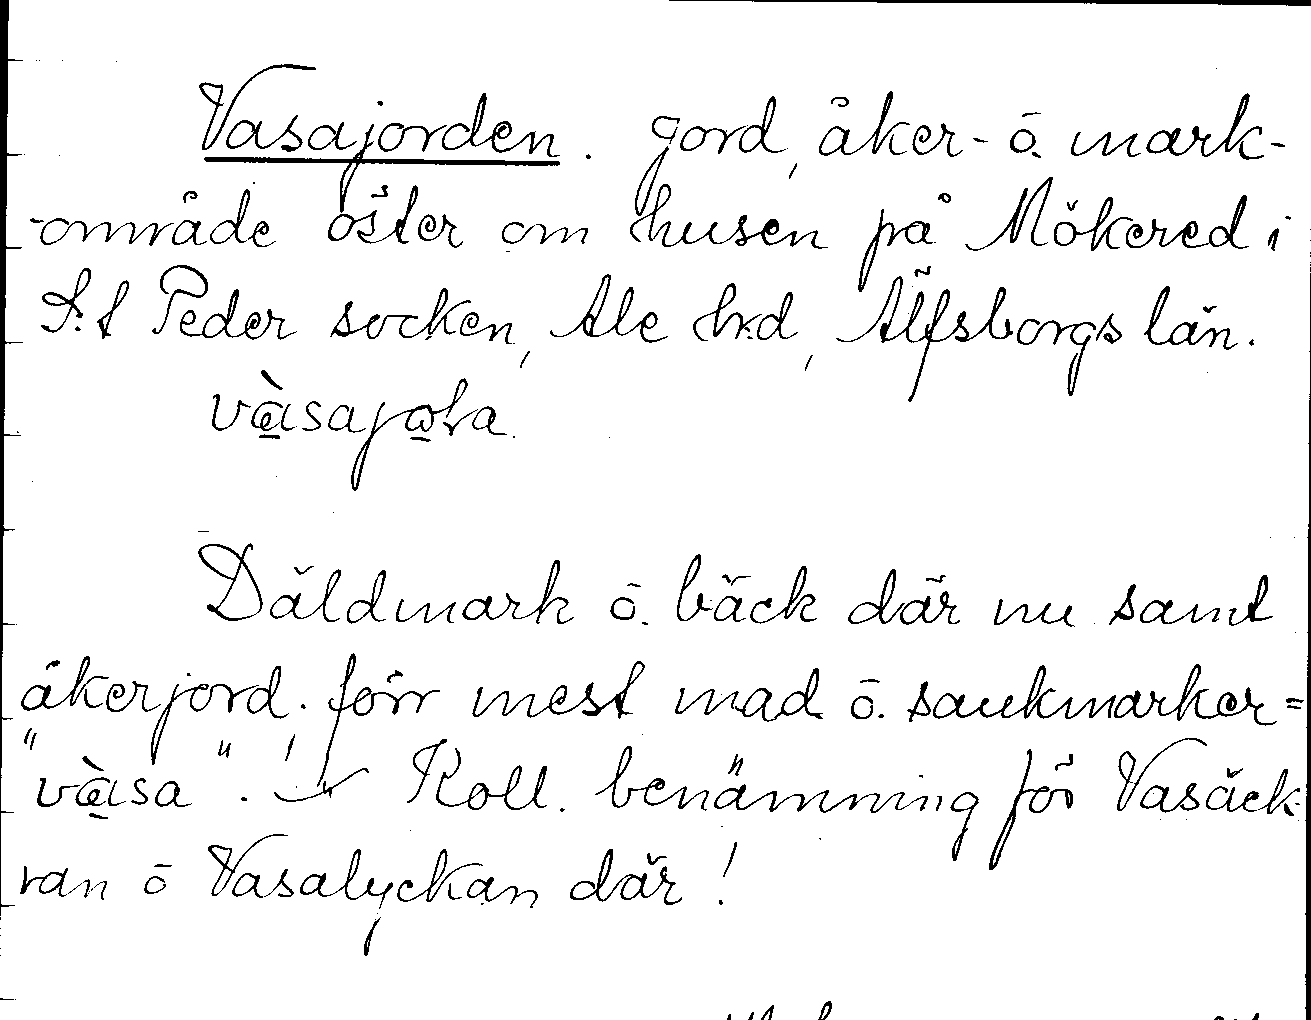 Vasajorden. Jord, åker- ō. mark-
-område öster om husen på Mökered i
S:t Peder socken, Ale hrd, Älfsborgs län.
Däldmark ō. bäck där nu samt
åkerjord. förr mest mad ō. sankmarker=
"vàsa". ! Koll. benämning för Vasäck-
ran ō Vasalyckan där!